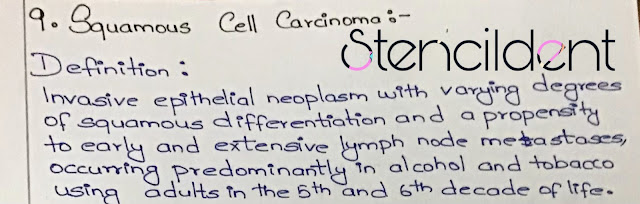 9. Squamous Cell Carcinoma :-
Stencildent
Definition :
Invasive epithelial neoplasm with varying degrees
of squamous differentiation and a propensity
to early and extensive lymph node metastases,
occurring predominantly in alcohol and tobacco
using adults in the 5th and 6th decade of life.